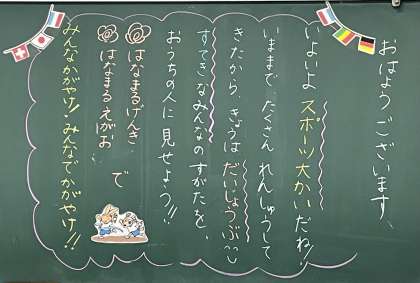 おはようございます、
いよいよ スポーツ大かいだね!!
いままで、たくさん れんしゅうして
きたから、きょうは だいじょうぶ
すてきなみんなのすがたを、
おうちの人に見せよう!!
はなまるげんき
はなまるえがお で
みんなかがやけ!みんなでかがやけ!!